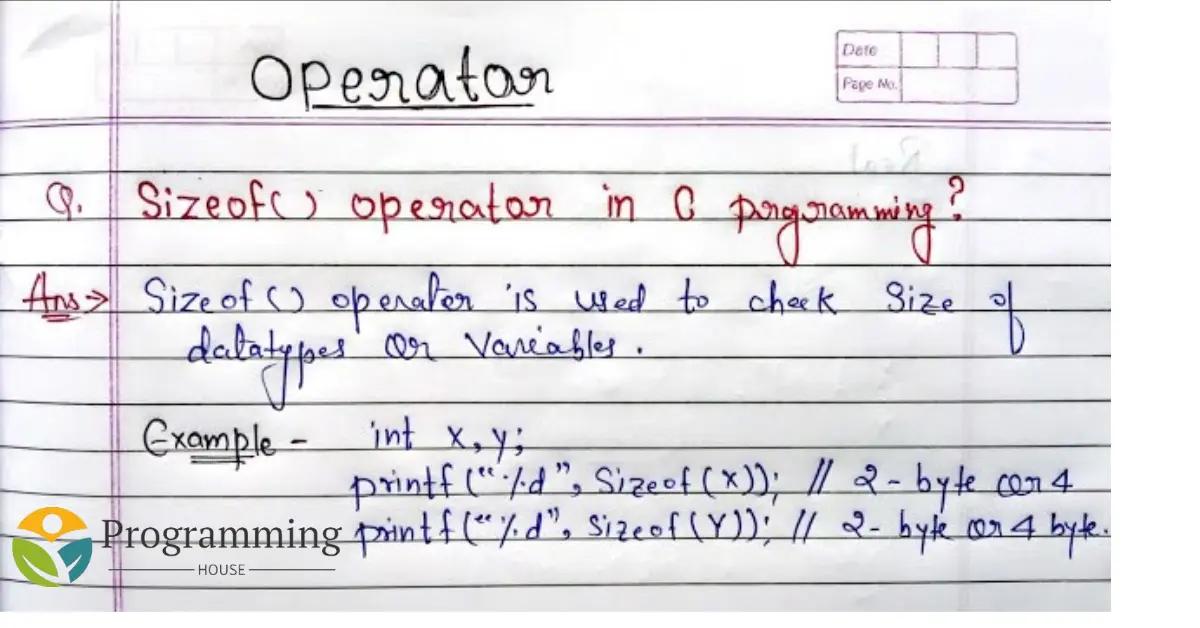 Operator
Date
Page No.
Q. Sizeof() operator in C programming?
Ans → Sizeof() operator is used to check Size of
datatypes or Variables.
Example - int x, y;
printf("%d", Sizeof(x)); // 2-byte or 4
printf("%d", Sizeof(Y)); // 2-byte or 4 byte.
Programming
HOUSE